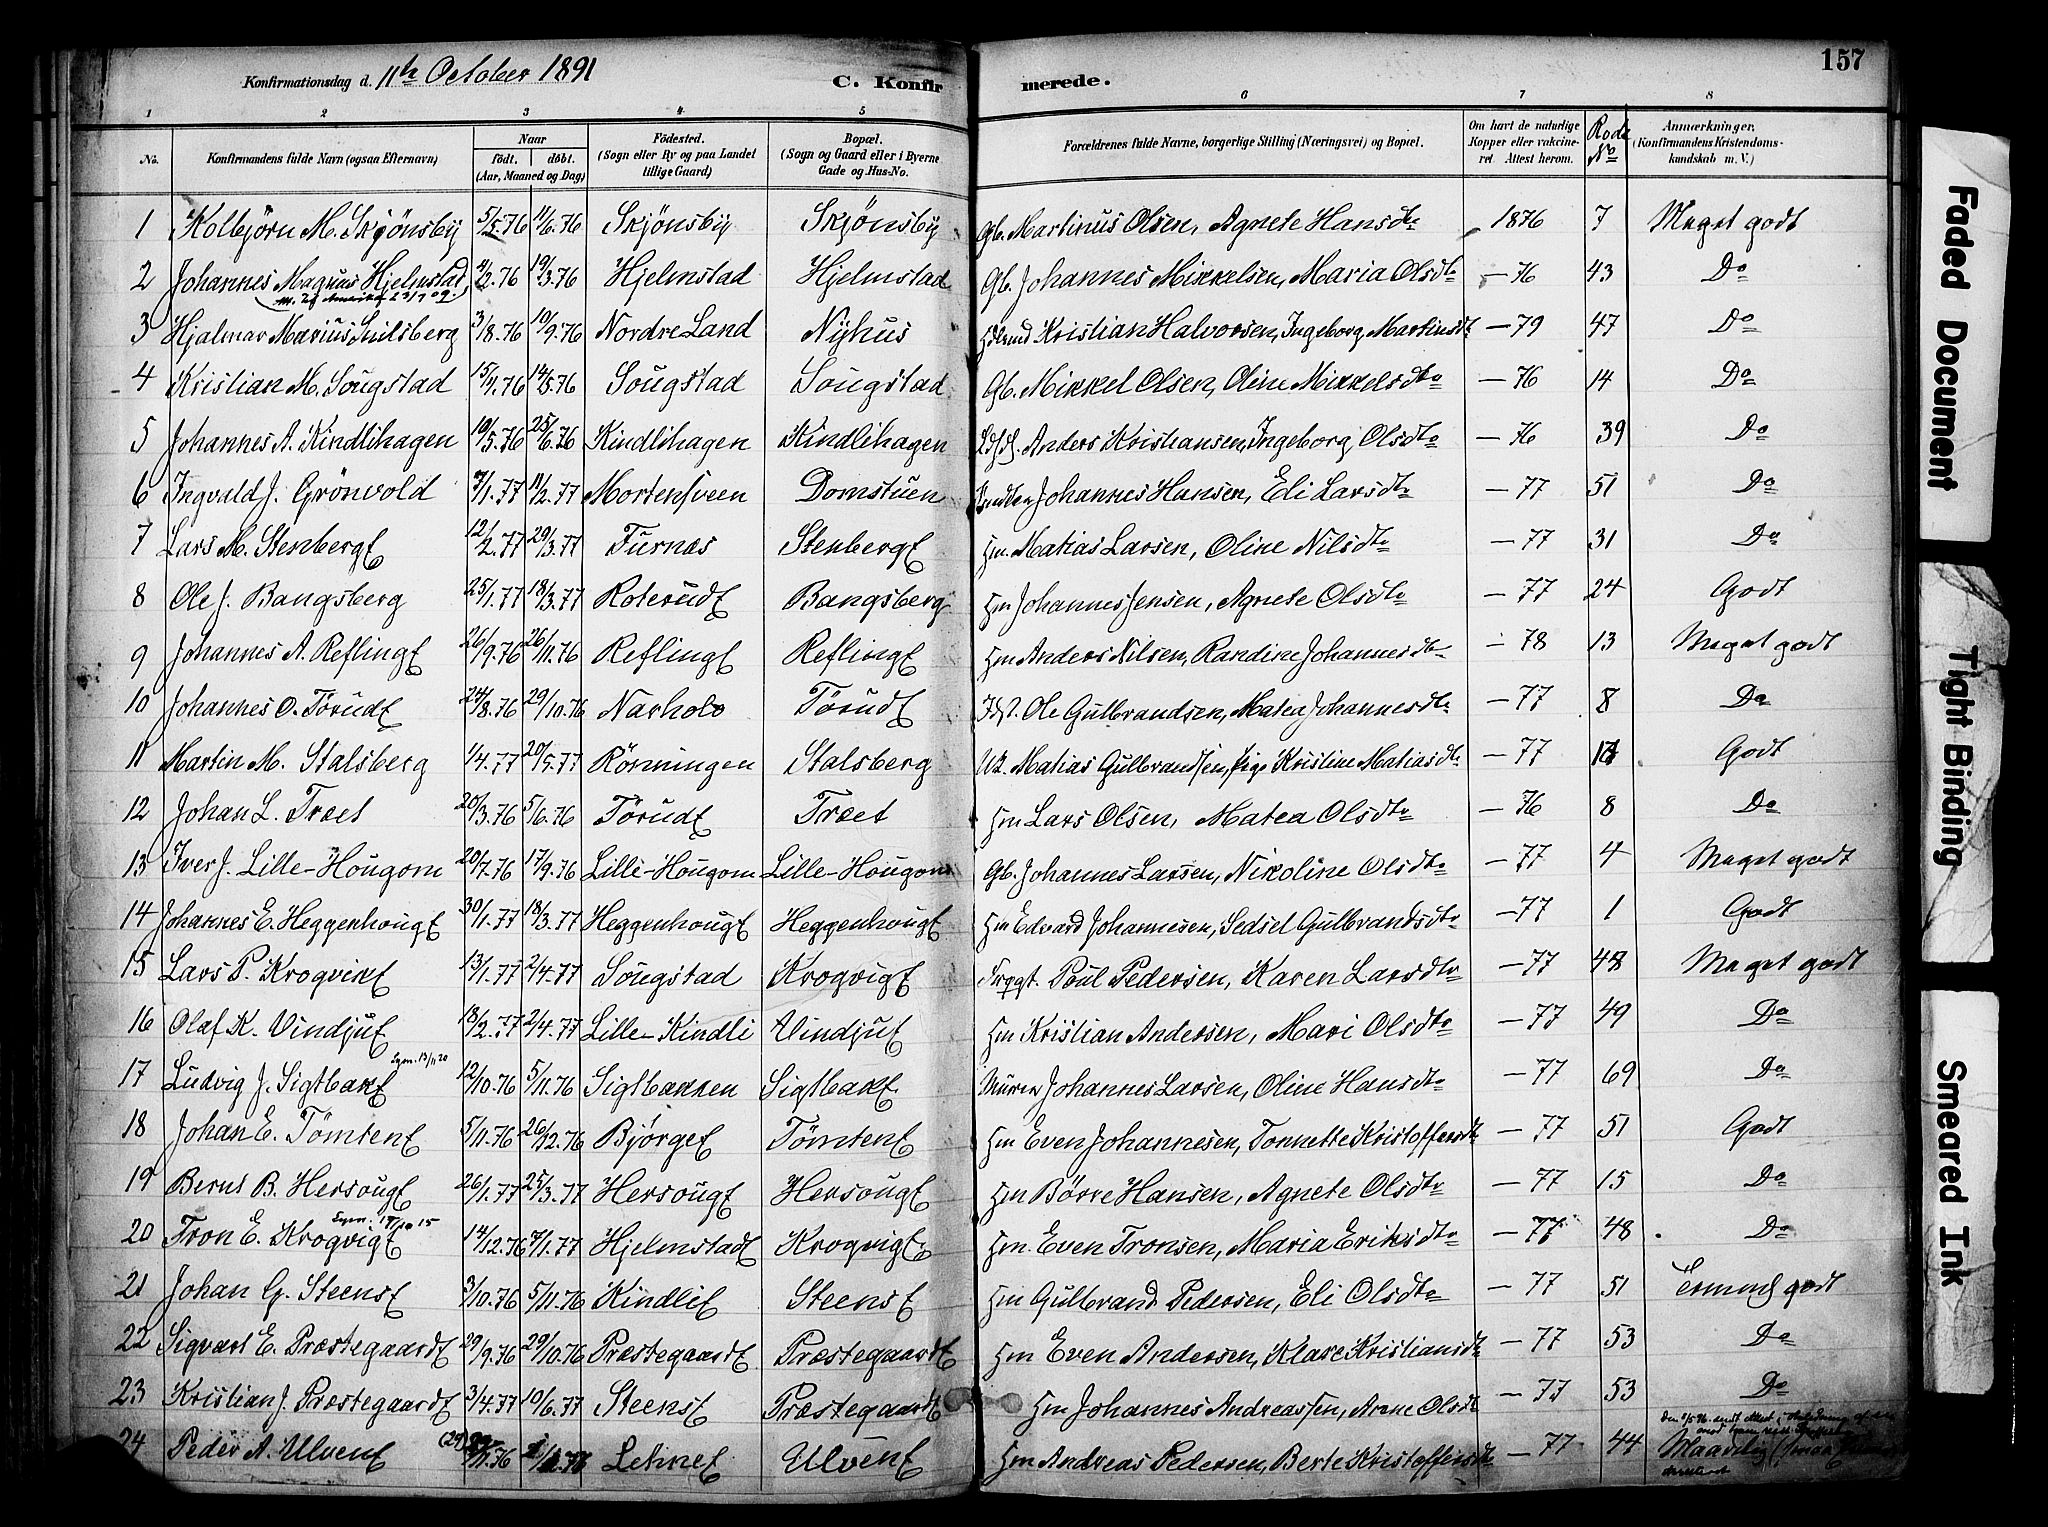 157
Konfirmationsdag d. 11te October 1891 C. Konfirmerede.
1 2 3 4 5 6 7 8
No. Konfirmandens fulde Navn (ogsaa Efternavn) Naar født. døbt. (Aar, Maaned og Dag) Fødested. (Sogn eller By og paa Landet tillige Gaard) Bopæl. (Sogn og Gaard eller i Byerne Gade og Hus-No. Forældrenes fulde Navne, borgerlige Stilling (Næringsvei) og Bopæl. Om havt de naturlige Kopper eller vakcineret. Attest herom. Rode No Anmærkninger. (Konfirmandens Kristendomskundskab m. V.)
1 Kolbjörn M. Skjönsby 5/5.76 11/6.76 Skjönsby Skjönsby Gb. Martinus Olsen, Agnete Hansdtr 1876 7 Meget godt
2 Johannes Magnus Hjelmstad 4/2.76 19/3.76 Hjelmstad Hjelmstad Gb. Johannes Mikkelsen, Maria Olsdtr - 76 43 Do
3 Hjalmar Marius 3/8.76 10/9.76 Nordre Land Nyhus Kristian Halvorsen, Ingeborg Martinsdt - 79 47 Do
4 Kristian M. Sougstad 15/4.76 14/5.76 Sougstad Sougstad Gb. Mikkel Olsen, Oline Mikkelsdtr - 76 14 Do
5 Johannes A. Kindlihagen 10/5.76 25/6.76 Kindlihagen Kindlihagen Anders Kristiansen, Ingeborg Olsdtr - 76 39 Do
6 Ingvald J. Grönvold 7/1.77 11/2.77 Mortensveen Domstuen Johannes Hansen, Eli Larsdtr - 77 51 Do
7 Lars M. Stenberge 12/2.77 29/3.77 Furnæs Stenberge Hm. Matias Larsen, Oline Nilsdtr - 77 31 Do
8 Ole J. Bangsberg 25/1.77 18/3.77 Roterude Bangsberg Hm Johannes Jensen, Agnete Olsdtr - 77 24 Godt
9 Johannes A. Reflinge 26/9.76 26/11.76 Reflinge Reflinge Hm Anders Nilsen, Randine Johannesdtr - 78 13 Meget godt
10 Johannes O. Törude 24/8.76 29/10.76 Narholo Törude Ole Gulbrandsen, Matea Johannesdtr - 77 8 Do
11 Martin M. Stalsberg 1/4.77 20/5.77 Rönningen Stalsberg Matias Gulbrandsen, Pige Kristine Matiasdtr - 77 Godt
12 Johan L. Træet 20/3.76 5/6.76 Törude Træet Hm Lars Olsen, Matea Olsdtr - 76 8 Do
13 Iver J. Lille-Hougom 20/7.76 17/9.76 Lille-Hougom Lille-Hougom Gb. Johannes Larsen, Nikoline Olsdtr - 77 4 Meget godt
14 Johannes E. Heggenhouge 30/1.77 18/3.77 Heggenhouge Heggenhouge Hm Edvard Johannesen, Sedsel Gulbrandsdtr - 77 1 Godt
15 Lars P. Krogvike 13/1.77 2/4.77 Sougstad Krogvige Poul Pedersen, Karen Larsdtr - 77 48 Meget godt
16 Olaf K. Vindjue 18/2.77 2/4.77 Lille-Kindli Vindjue Hm Kristian Andersen, Mari Olsdtr - 77 49 Do
17 Ludvig J. Sigtbake 12/10.76 5/11.76 Sigtbakken Sigtbake Murer Johannes Larsen, Oline Hansdtr - 77 69 Do
18 Johan E. Tömtene 5/11.76 26/12.76 Bjørge Tömtene Hm Even Johannesen, Tonnette Kristoffersdtr - 77 51 Godt
19 Bernt B. Hersouge 26/1.77 25/3.77 Hersouge Hersouge Hm Börre Hansen, Agnete Olsdtr - 77 15 Do
20 Tron E. Krogvige 14/12.76 7/1.77 Hjelmstade Krogvige Hm. Even Tronsen, Maria Eriksdtr - 77 48 Do
21 Johan G. Steense 3/10.76 5/11.76 Kindlie Steense Hm Gulbrand Pedersen, Eli Olsdtr - 77 51 godt
22 Sigvart E. Præstegaarde 29/9.76 29/10.76 Præstegaarde Præstegaarde Hm Even Andersen, Klare Kristiansdtr - 77 53 Do
23 Kristian J. Præstegaarde 3/4.77 10/6.77 Steense Præstegaarde Hm Johannes Andreassen, Arne Olsdt - 77 53 Do
24 Peder A. Ulvene Lehne Ulvene Hm Andreas Pedersen, Berte Kristoffersdtr - 77 44
Faded Document
Tight Binding
Smeared Ink